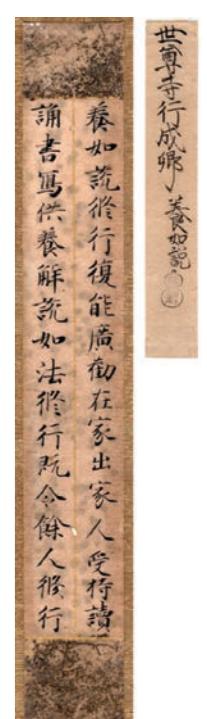 世尊寺行成卿 養如説
養如説修行復能廣勸在家出家人受持讀
誦書寫供養解説如法修行既令餘人修行